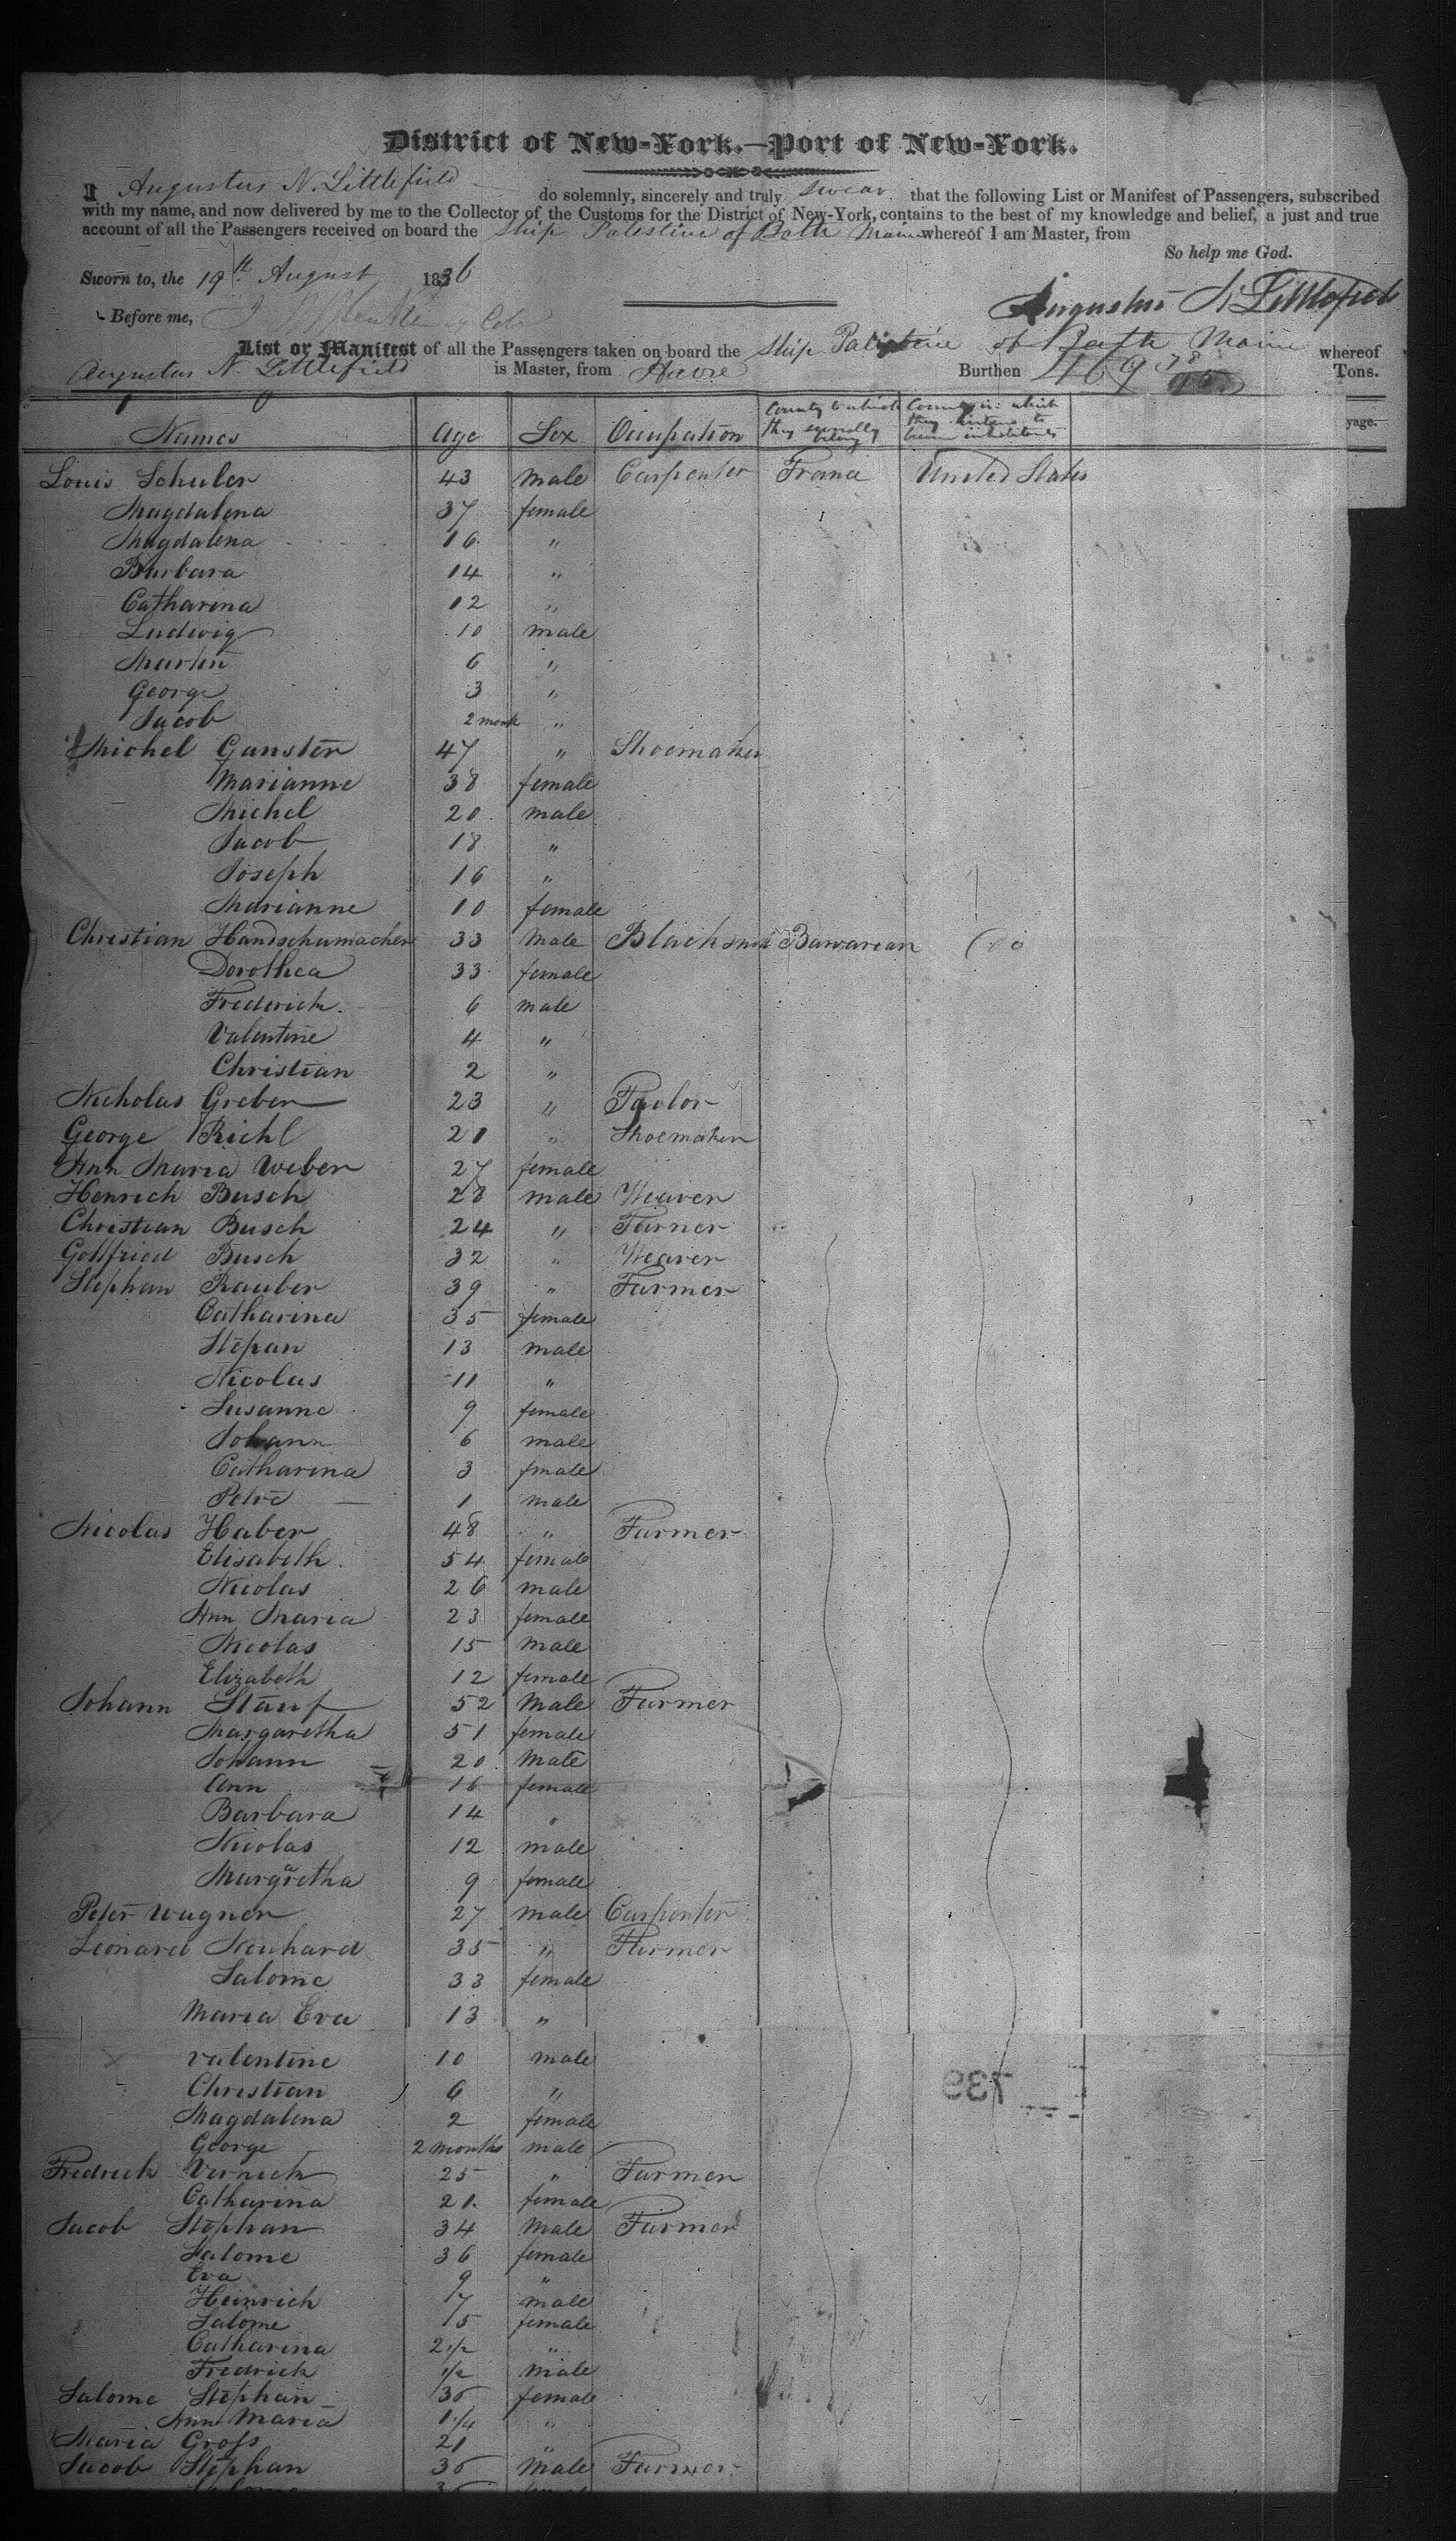 District of New-York.—Port of New-York.
I Augustus N. Littlefield do solemnly, sincerely and truly swear that the following List or Manifest of Passengers, subscribed
with my name, and now delivered by me to the Collector of the Customs for the District of New-York, contains to the best of my knowledge and belief, a just and true
account of all the Passengers received on board the Ship Palestine of Bath Maine whereof I am Master, from
So help me God.
Sworn to, the 19th August 1836
Augustus N. Littlefield
Before me,
List or Manifest of all the Passengers taken on board the Ship Palestine of Bath Maine whereof
Augustus N. Littlefield is Master, from Havre Burthen 469 Tons.
Names Age Sex Occupation Country to which they severally belong Country in which they intend to become inhabitants yage.
Louis Schuler 43 male Carpenter France United States
Magdalena 37 female
Magdalena 16 "
Barbara 14 "
Catharina 12 "
Ludwig 10 male
Martin 6 "
George 3 "
Jacob 2 month "
Michel Ganster 47 " Shoemaker
Marianne 38 female
Michel 20 male
Jacob 18 "
Joseph 16 "
Marianne 10 female
Christian Handschumacher 33 Male Blacksmit Bawarian do
Dorothea 33 female
Frederick 6 male
Valentine 4 "
Christian 2 "
Nicholas Greber 23 " Taylor
George Richl 21 " Shoemaker
Ann Maria Weber 27 female
Henrich Busch 28 male Weaver
Christian Busch 24 " Turner
Gottfried Busch 32 " Weaver
Stephan Rauber 39 " Farmer
Catharina 35 female
Stepan 13 male
Nicolas 11 "
Susanne 9 female
Johann 6 male
Catharina 3 fmale
Petre 1 male
Nicolas Haber 48 " Farmer
Elisabeth 54 female
Nicolas 26 male
Ann Maria 23 female
Nicolas 15 male
Elizabeth 12 female
Johann Stauf 52 Male Farmer
Margaretha 51 female
Johann 20 Male
Ann 16 female
Barbara 14 "
Nicolas 12 male
Margaretha 9 female
Peter Wagner 27 male Carpenter
Leonard Neuhard 35 " Farmer
Salome 33 female
Maria Eva 13 "
Valentine 10 male
Christian 6 "
Magdalena 2 female
739
George 2 months male
Fredrick Vernich 25 " Farmer
Catharina 21 female
Jacob Stephan 34 Male Farmer
Salome 36 female
Eva 9 "
Heinrich 7 male
Salome 5 female
Catharina 2 1/2 "
Fredrick 1/2 male
Salome Stephan 36 female
Ann Maria 1 1/4 "
Maria Groſs 21 "
Jacob Stephan 36 Male Farmer